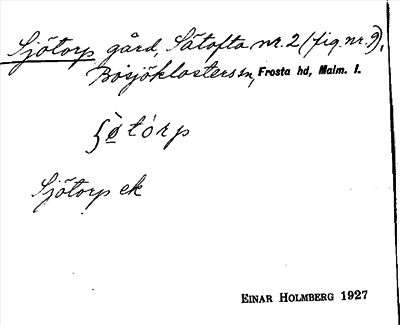 Sjötorp gård, Sätofta nr. 2 (fig. nr. 9),
Bosjöklosters sn, Frosta hd, Malm. l.
Sjötorp ek
EINAR HOLMBERG 1927